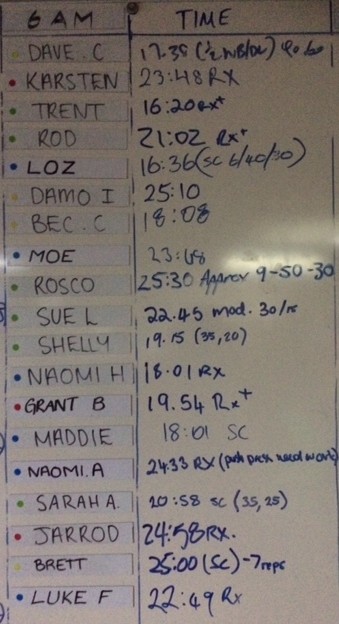 6 AM TIME
DAVE. C 17.38 (½
KARSTEN 23:48 RX
TRENT 16:20 RX+
ROD 21:02 Rx+
LOZ 16:36 (SC 6/40/30)
DAMO I 25:10
BEC. C 18:08
MOE
ROSCO 25:30 Approx 9-50-30
SUE L 22.45 mod. 30/15
SHELLY 19.15 (35,20)
NAOMI H 18.01 RX
GRANT B 19.54 Rx+
MADDIE 18:01 SC
NAOMI.A 24:33 RX (push press need work)
SARAH A. 20:58 SC (35,25)
JARROD 24:58 RX.
BRETT 25:00 (SC) -7 reps
LUKE F 22:49 Rx